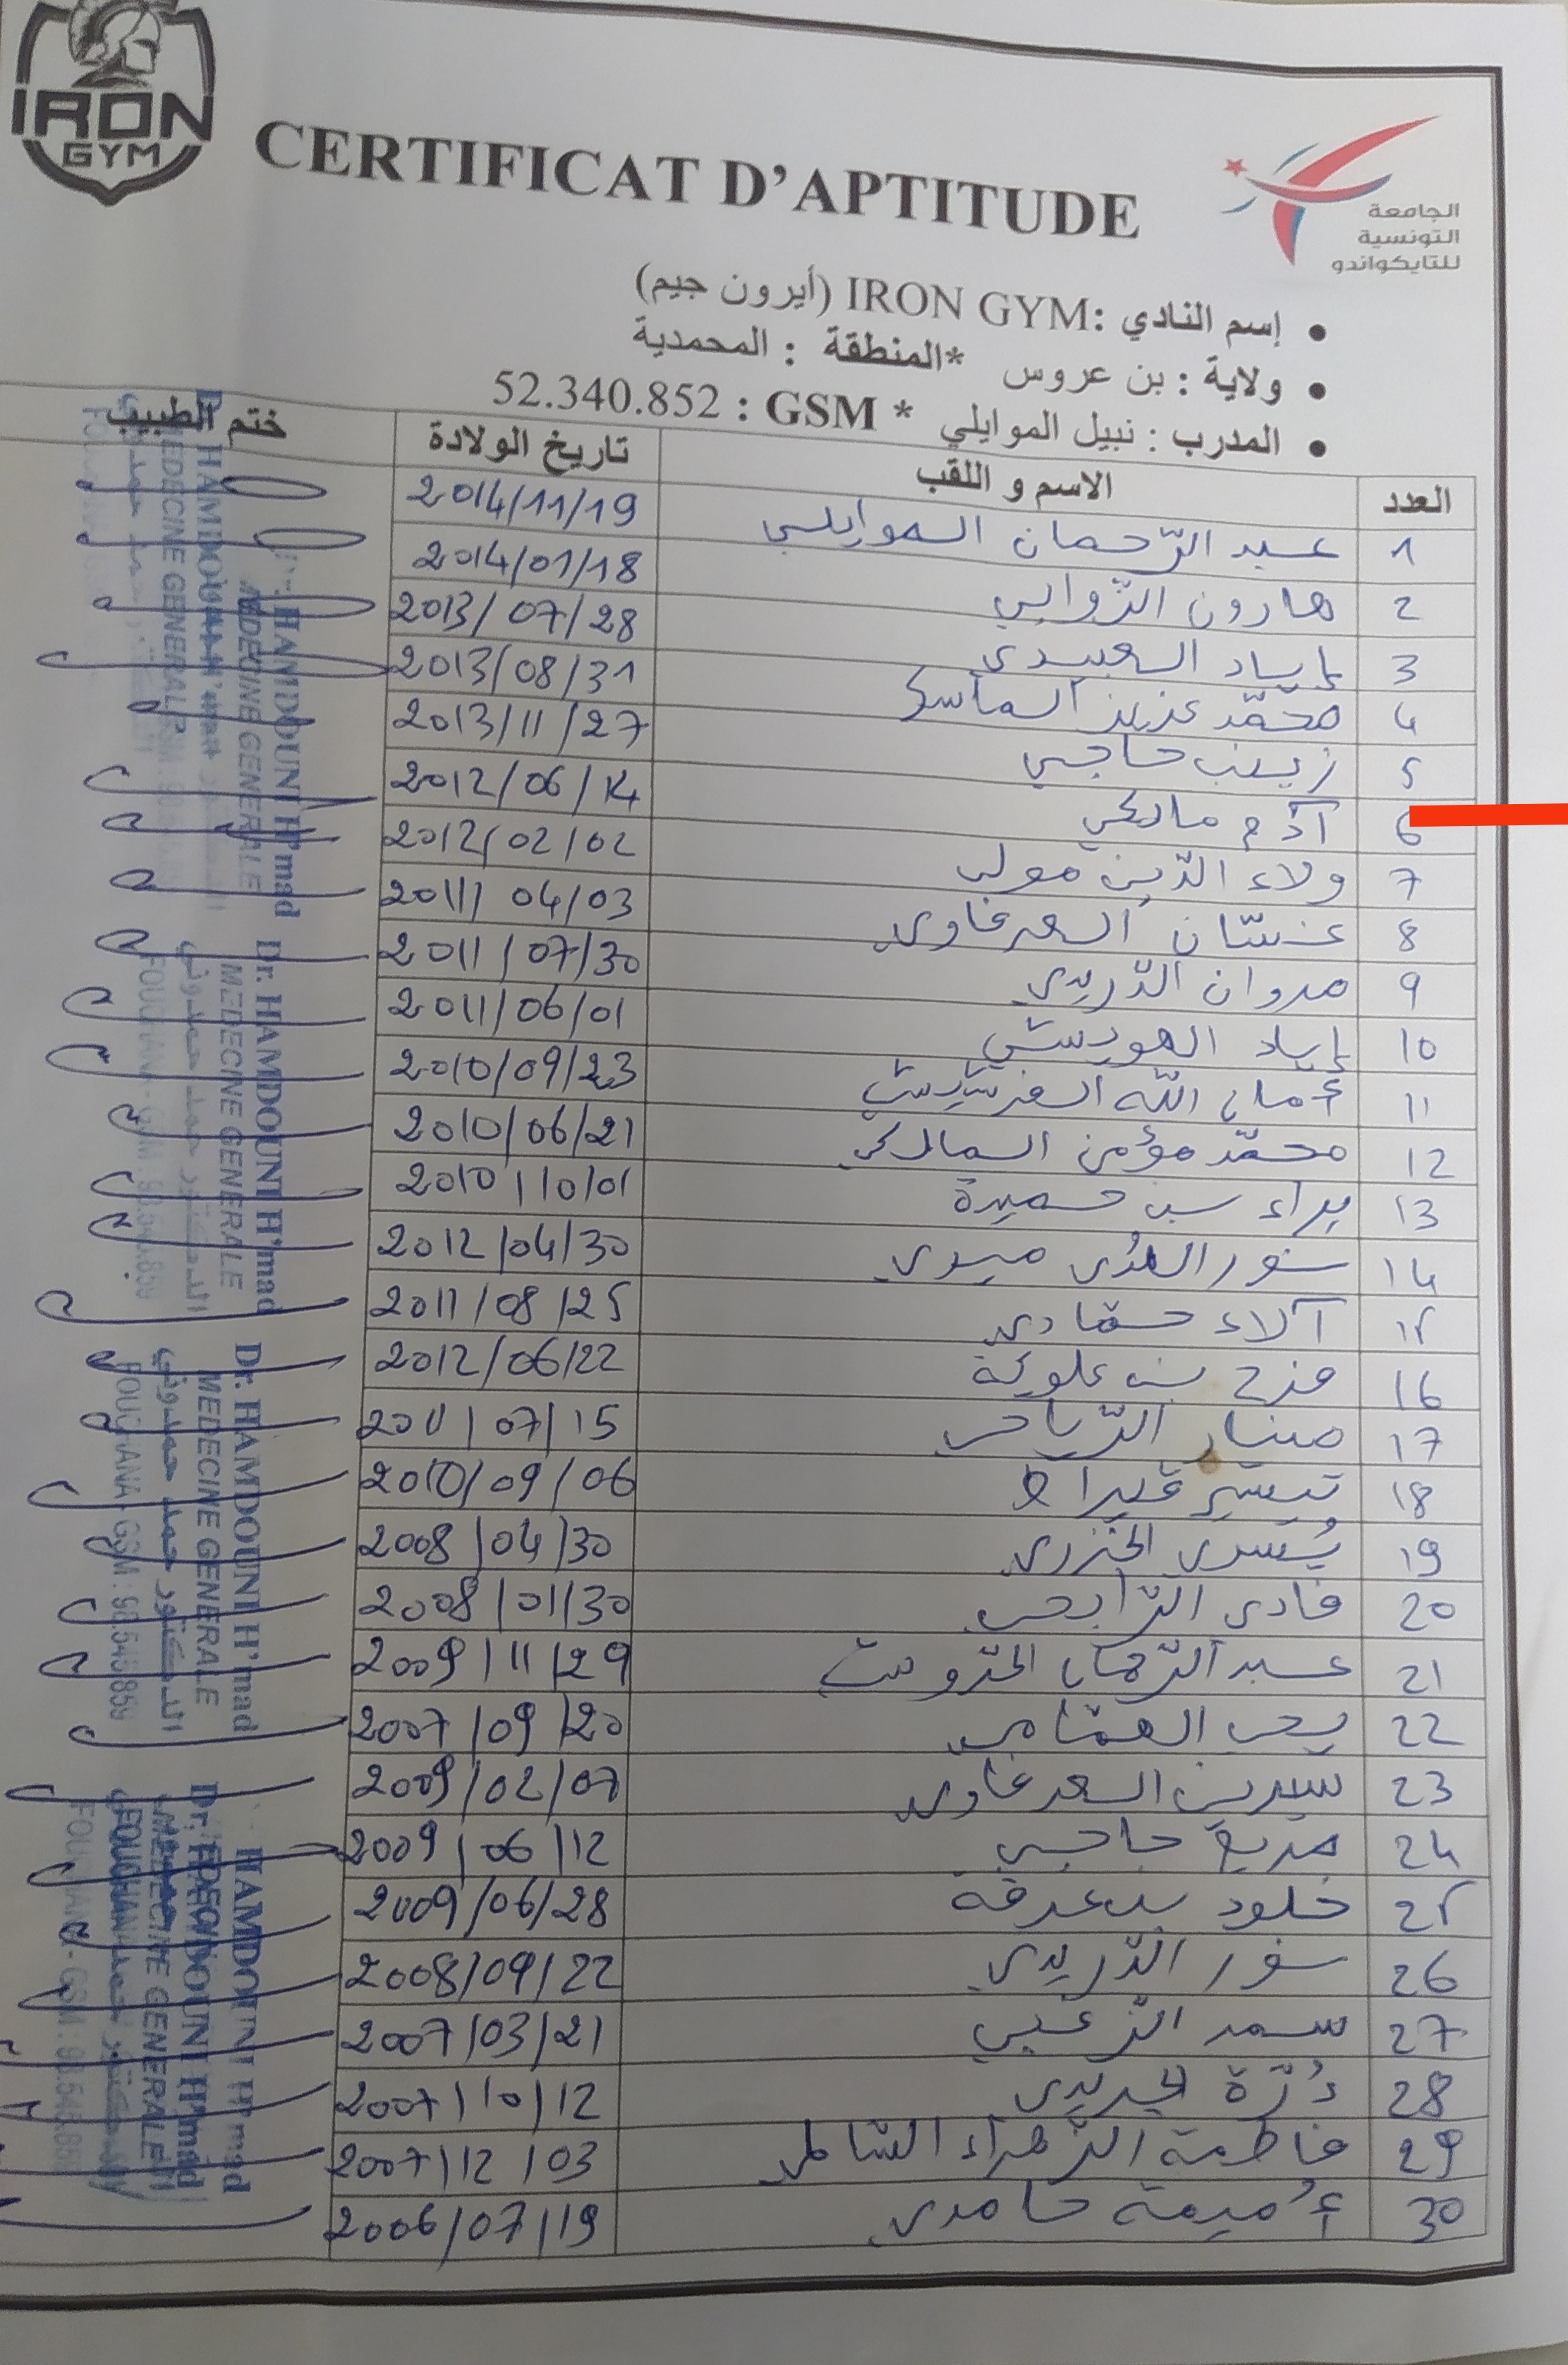 IRON
GYM
CERTIFICAT D'APTITUDE
الجامعة
التونسية
للتايكواندو
• إسم النادي :IRON GYM (أيرون جيم)
• ولاية : بن عروس *المنطقة : المحمدية
• المدرب : نبيل الموايلي * GSM : 52.340.852
العدد الاسم و اللقب تاريخ الولادة ختم الطبيب
1 عبد الرّحمان الموايلي 2014/11/19
2 هارون الزوابي 2014/01/18
3 إياد العبيدي 2013/07/28
4 محمّد عزيز الماسكي 2013/08/31
5 زينب حاجي 2013/11/27
6 آدم مالكي 2012/06/14
7 ولاء الدّين مولى 2012/02/02
8 غسّان السعرفاوي 2011/04/03
9 مروان الدّريدي 2011/07/30
10 إياد الهويشي 2011/06/01
11 أمان الله الفرشيشي 2010/09/23
12 محمّد مؤمن المالكي 2010/06/21
13 براء بن حميدة 2010/10/01
14 نور الهدى ميدي 2012/04/30
15 آلاء حمّادي 2011/08/25
16 فرح بن علوية 2012/06/22
17 ميار الرّياحي 2011/07/15
18 تيسير قيراط 2010/09/06
19 يُسرى الخزري 2008/04/30
20 فادي الرّابحي 2008/01/30
21 عبد الرّحمان الخرّوبي 2009/11/29
22 يحيى العمّامي 2007/09/20
23 سيرين السعرفاوي 2009/02/07
24 مريم حاجي 2009/06/12
25 خلود بن عرفة 2009/06/28
26 نور الدّريدي 2008/09/22
27 سمر الزغبي 2007/03/21
28 دُرّة الجريدي 2007/10/12
29 فاطمة الزّهراء الشّاملي 2007/12/03
30 أُميمة حامدي 2006/07/19
Dr. HAMDOUNI H'mad
MEDECINE GENERALE
الدكتور حمد حمدوني
FOUCHANA - GSM : 98.545.859
Dr. HAMDOUNI H'mad
MEDECINE GENERALE
الدكتور حمد حمدوني
FOUCHANA - GSM : 98.545.859